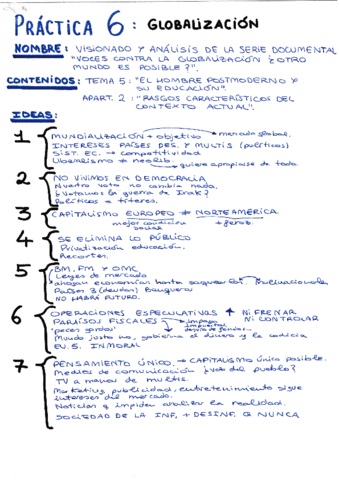 PRÁCTICA 6 : GLOBALIZACIÓN
NOMBRE: VISIONADO Y ANÁLISIS DE LA SERIE DOCUMENTAL
"VOCES CONTRA LA GLOBALIZACIÓN ¿OTRO
MUNDO ES POSIBLE?".
CONTENIDOS: TEMA 5: "EL HOMBRE POSTMODERNO Y
SU EDUCACIÓN".
APART. 2: "RASGOS CARACTERÍSTICOS DEL
CONTEXTO ACTUAL".
IDEAS:
1 MUNDIALIZACIÓN → objetivo → mercado global.
INTERESES PAÍSES DES. Y MULTIS (políticos)
SIST. EC. → competitividad
Liberalismo → neolib. quiere apropiarse de todo.
2 NO VIVIMOS EN DEMOCRACIA
Nuestro voto no cambia nada.
¿Votamos la guerra de Irak?
Políticos = títeres.
3 CAPITALISMO EUROPEO ≠ NORTEAMÉRICA.
mejor condición social
4 SE ELIMINA LO PÚBLICO
Privatización educación.
Recortes.
5 BM, FM Y OMC
Leyes de mercado
ahogan economías hasta saquearlas.
Países 3 (deudas)
NO HABRÁ FUTURO.
6 OPERACIONES ESPECULATIVAS NI FRENAR
PARAÍSOS FISCALES NI CONTROLAR
peces gordos
Mundo justo no, gobierna el dinero y la codicia
INMORAL
7 PENSAMIENTO ÚNICO → CAPITALISMO único posible.
Medios de comunicación ¿voz del pueblo?
TV a manos de multis.
Marketing, publicidad, entretenimiento sigue
intereses del mercado.
Noticias q impiden analizar la realidad.
SOCIEDAD DE LA INF, + DESINF. Q NUNCA